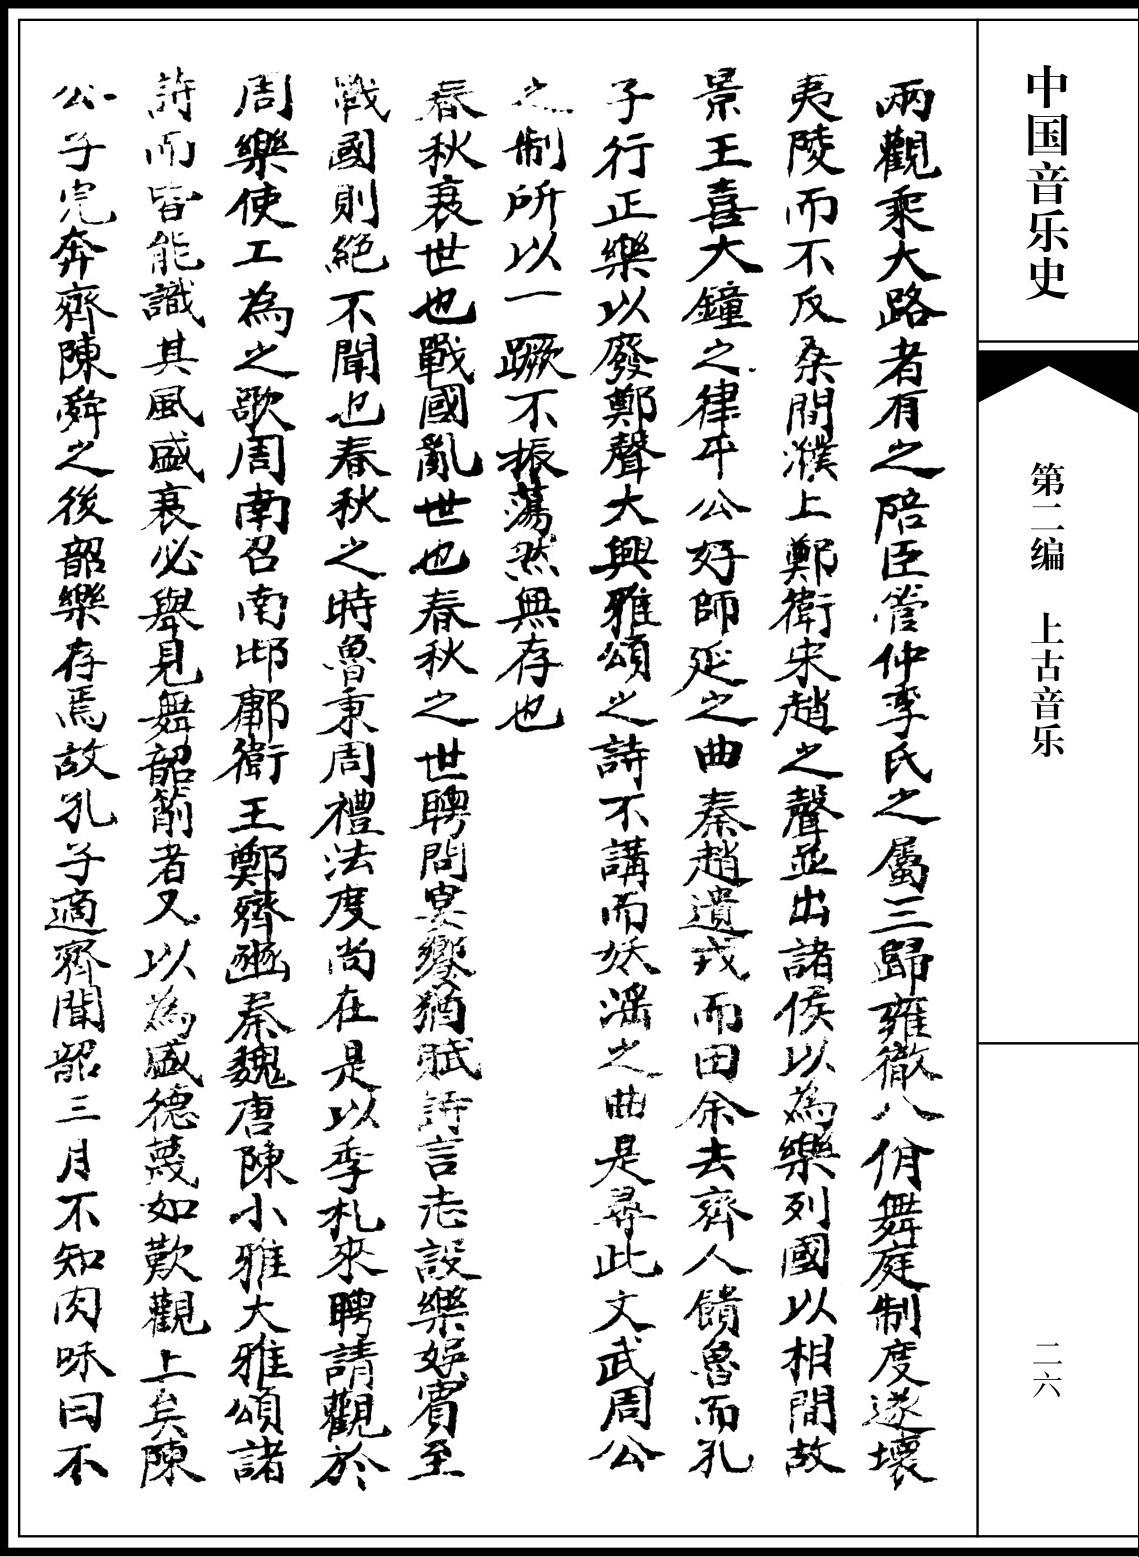 中国音乐史
第二编 上古音乐
二六
兩觀乘大路者有之陪臣管仲季氏之屬三歸雍徹八佾舞庭制度遂壞
夷陵而不反桑間濮上鄭衛宋趙之聲並出諸侯以為樂列國以相間故
景王喜大鐘之律平公好師延之曲秦趙遺戎而由余去齊人饋魯而孔
子行正樂以廢鄭聲大興雅頌之詩不講而妖淫之曲是尋此文武周公
之制所以一蹶不振蕩然無存也
春秋衰世也戰國亂世也春秋之世聘問宴饗猶賦詩言志設樂娛賓至
戰國則絕不聞也春秋之時魯秉周禮法度尚在是以季札來聘請觀於
周樂使工為之歌周南召南邶鄘衛王鄭齊豳秦魏唐陳小雅大雅頌諸
詩而皆能識其風盛衰必舉見舞韶箾者又以為盛德蔑如歎觀止矣陳
公子完奔齊陳舜之後韶樂存焉故孔子適齊聞韶三月不知肉味曰不